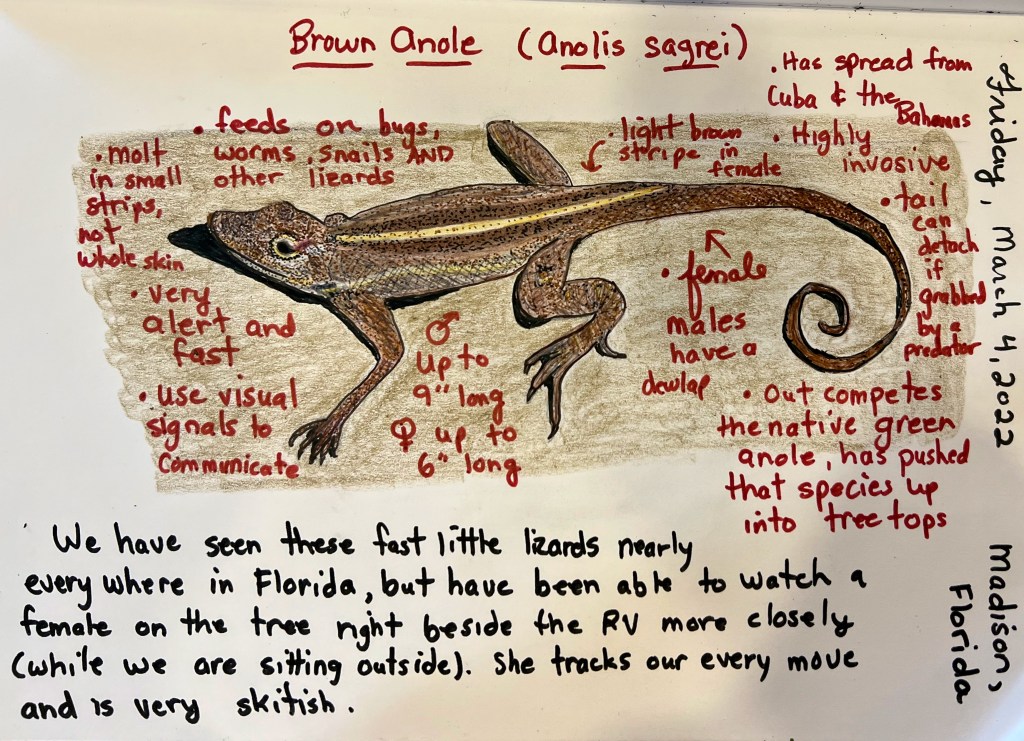 Brown Anole (Anolis sagrei)
• Has spread from
Cuba & the
Bahamas
• Highly
invosive
• tail
can
detach
if
grabbed
by a
predator
• feeds on bugs,
worms, snails AND
other lizards
• light brown
stripe in
female
• molt
in small
strips,
not
whole skin
• very
alert and
fast
• use visual
signals to
communicate
♂
up to
9" long
♀ up to
6" long
• female
males
have a
dewlap
• Out competes
the native green
anole, has pushed
that species up
into tree tops
We have seen these fast little lizards nearly
every where in Florida, but have been able to watch a
female on the tree right beside the RV more closely
(while we are sitting outside). She tracks our every move
and is very skitish.
Friday, March 4, 2022
Madison,
Florida